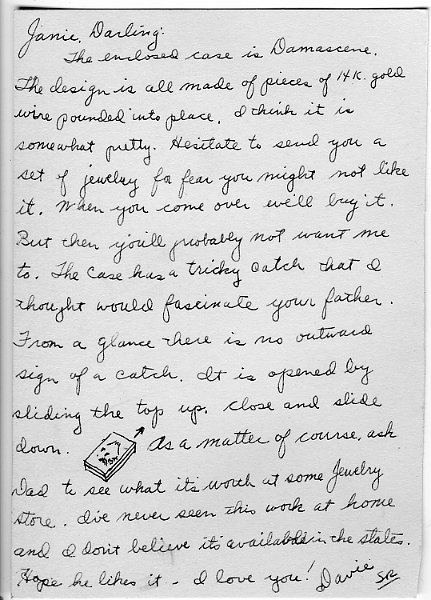 Janie, Darling:
The enclosed case is Damascene.
The design is all made of pieces of 14K. gold
wire pounded into place. I think it is
somewhat pretty. Hesitate to send you a
set of jewelry for fear you might not like
it. When you come over we'll buy it.
But then you'll probably not want me
to. The case has a tricky catch that I
thought would fascinate your father.
From a glance there is no outward
sign of a catch. It is opened by
sliding the top up. Close and slide
down. As a matter of course, ask
Dad to see what it's worth at some Jewelry
store. I've never seen this work at home
and I don't believe it's available in the states.
Hope he likes it - I love you! Davie